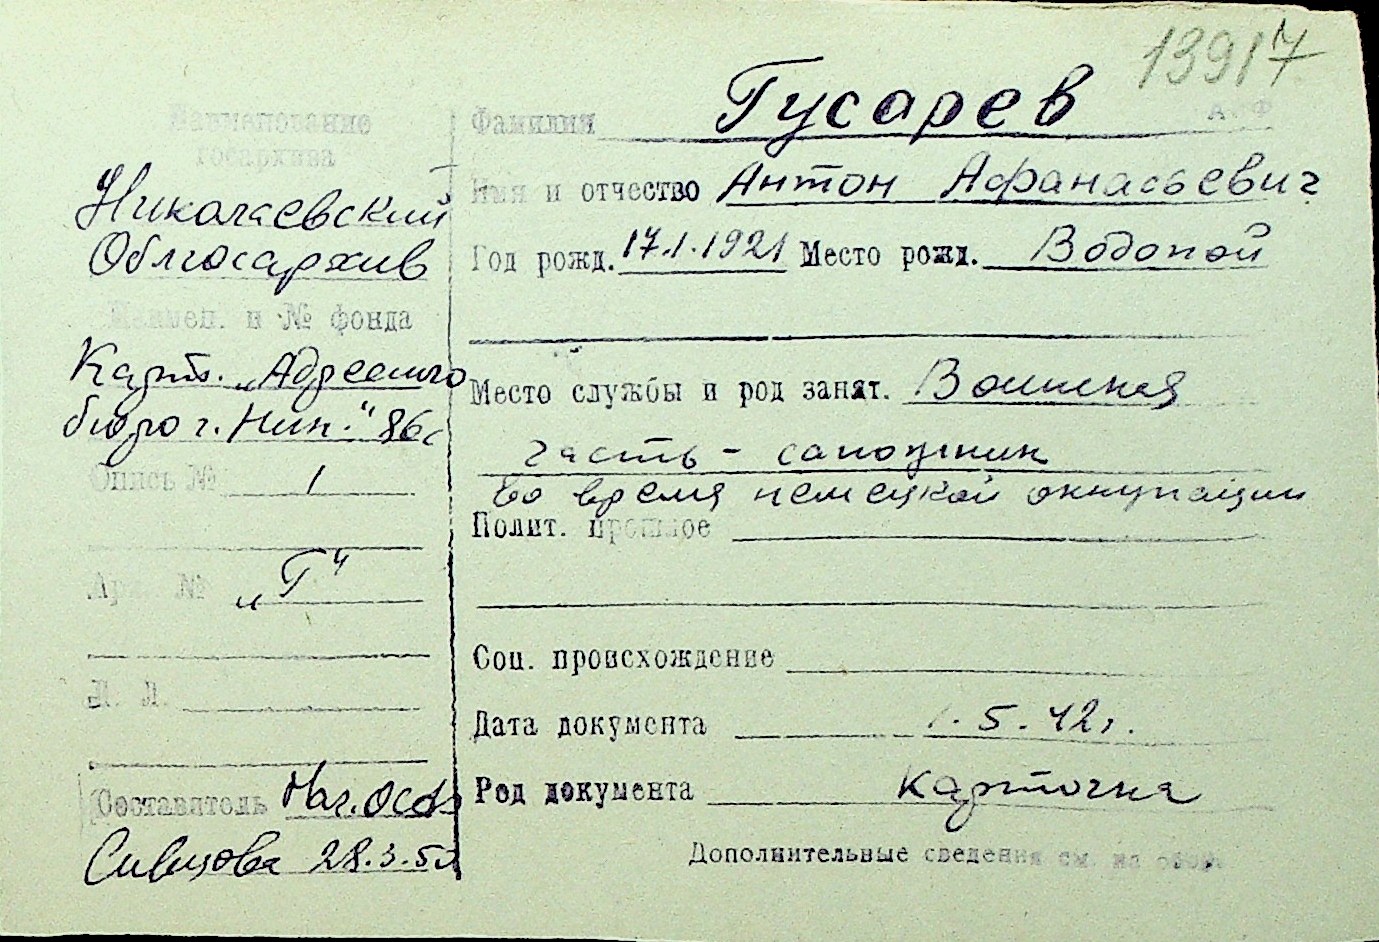 13917
Наименование
госархива
Николаевский
Облгосархив
Наимен. и № фонда
Карт. „Адресного
бюро г. Ник." 86с
Опись № 1
Арх. № „Г"
Л. Л.
Составитель Нач. ОСФ
28.3.5
Фамилия Гусарев
А. Ф
Имя и отчество Антон Афанасьевич
Год рожд. 17.1.1921 Место рожд. Водопой
Место службы и род занят. Воинская
часть - сапожник
во время немецкой оккупации
Полит. прошлое
Соц. происхождение
Дата документа 1.5.42г.
Род документа карточка
Дополнительные сведения см. на обор.